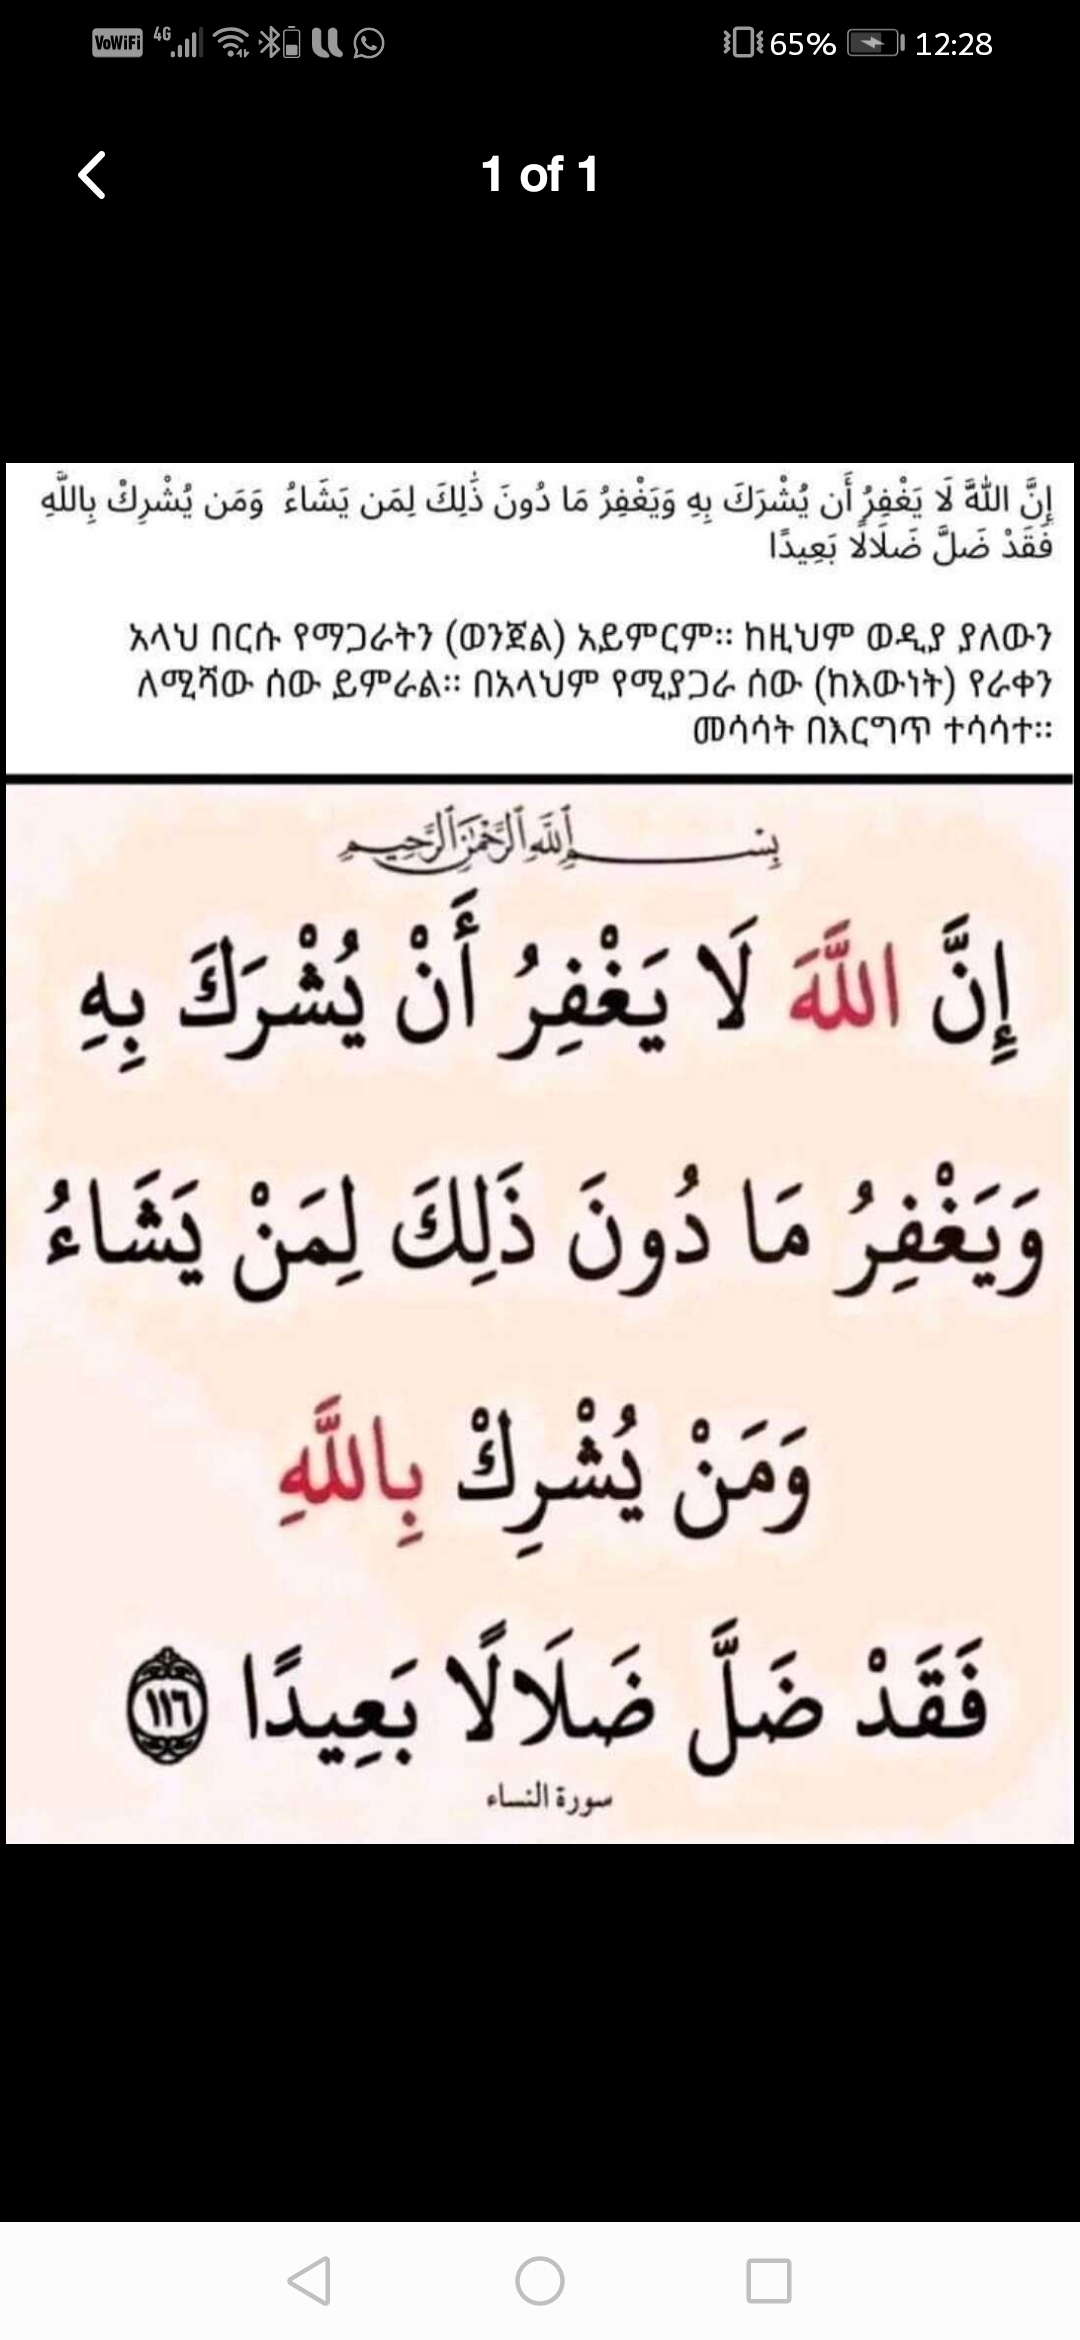 VoWiFi 4G 65% 12:28
1 of 1
إِنَّ اللَّهَ لَا يَغْفِرُ أَن يُشْرَكَ بِهِ وَيَغْفِرُ مَا دُونَ ذَٰلِكَ لِمَن يَشَاءُ وَمَن يُشْرِكْ بِاللَّهِ
فَقَدْ ضَلَّ ضَلَالًا بَعِيدًا
አላህ በርሱ የማጋራትን (ወንጀል) አይምርም፡፡ ከዚህም ወዲያ ያለውን
ለሚሻው ሰው ይምራል፡፡ በአላህም የሚያጋራ ሰው (ከእውነት) የራቀን
መሳሳት በእርግጥ ተሳሳተ፡፡
بِسْمِ ٱللَّهِ ٱلرَّحْمَٰنِ ٱلرَّحِيمِ
إِنَّ اللَّهَ لَا يَغْفِرُ أَنْ يُشْرَكَ بِهِ
وَيَغْفِرُ مَا دُونَ ذَلِكَ لِمَنْ يَشَاءُ
وَمَنْ يُشْرِكْ بِاللَّهِ
فَقَدْ ضَلَّ ضَلَالًا بَعِيدًا ١١٦
سورة النساء